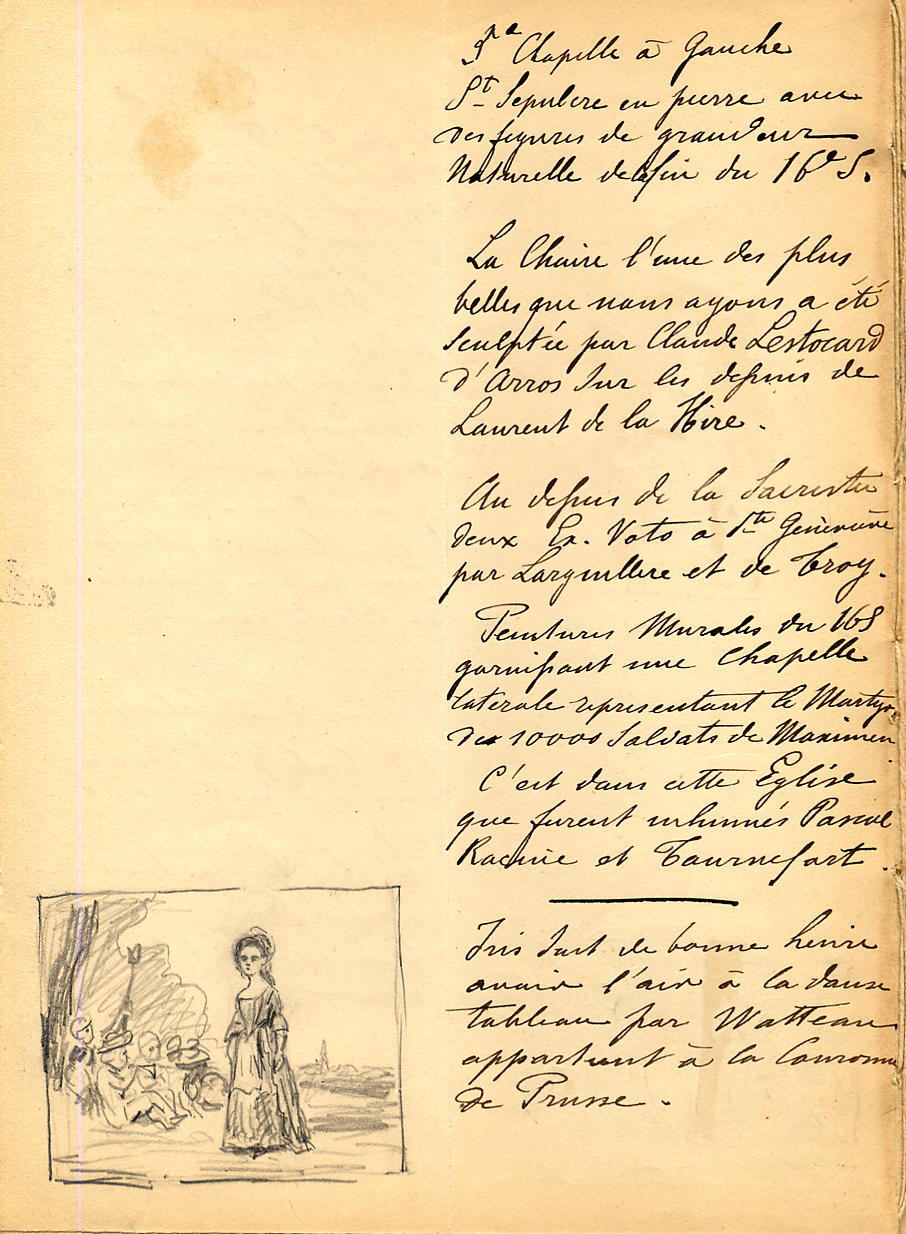 3me Chapelle à Gauche
St Sepulcre en pierre avec
des figures de grandeur
Naturelle de la fin du 16e S.
La Chaire l'une des plus
belles que nous ayons a été
sculptée par Claude Lestocard
d'Arros sur les dessins de
Laurent de la Hire.
Au dessus de la Sacristie
deux Ex. Voto à Ste Géneviève
par Largillere et de Troy.
Peintures Murales du 16 S
garnissant une Chapelle
laterale representant le Martyr
des 10000 Soldats de Maximien
C'est dans cette Eglise
que furent inhumés Pascal
Racine et Tournefort.
Iris sait de bonne heure
avoir l'air à la danse
tableau par Watteau
appartient à la Couronne
de Prusse.